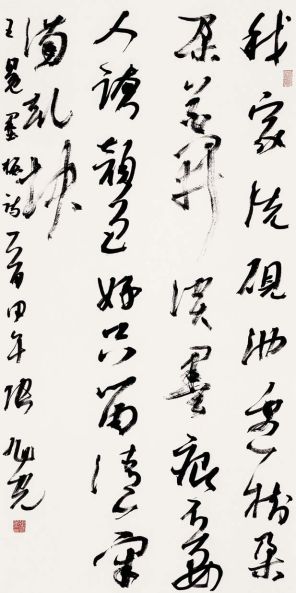 我家洗硯池邊樹朵
朵花開淡墨痕不要
人誇顏色好只留清氣
滿乾坤
王冕墨梅詩一首 年張旭光